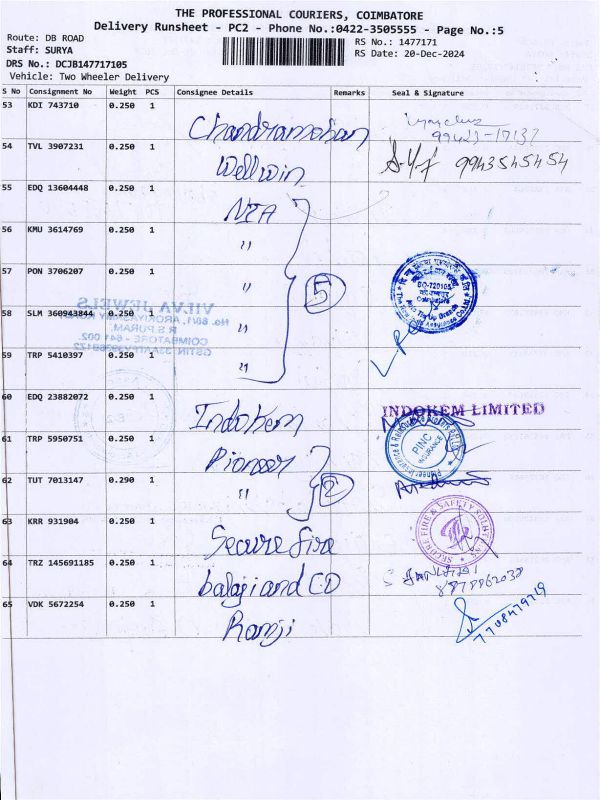 THE PROFESSIONAL COURIERS, COIMBATORE
Delivery Runsheet - PC2 - Phone No.:0422-3505555 - Page No.:5
Route: DB ROAD
RS No.: 1477171
Staff: SURYA
RS Date: 20-Dec-2024
DRS No.: DCJB147717105
Vehicle: Two Wheeler Delivery
S No Consignment No Weight PCS Consignee Details Remarks Seal & Signature
53 KDI 743710 0.250 1 Chandramohan
99423-17137
54 TVL 3907231 0.250 1 Wellwin 9943545454
55 EDQ 13604448 0.250 1 NIA
56 KMU 3614769 0.250 1 "
57 PON 3706207 0.250 1 " 5
58 SLM 360943844 0.250 1 "
59 TRP 5410397 0.250 1 "
VILVA JEWELS
R S PURAM,
COIMBATORE - 641 002.
60 EDQ 23882072 0.250 1 Indokem INDOKEM LIMITED
61 TRP 5950751 0.250 1 Pioneer
PINC
INSURANCE
62 TUT 7013147 0.290 1 " 2
63 KRR 931904 0.250 1 Secure fire
SECURE FIRE & SAFETY
64 TRZ 145691185 0.250 1 balaji and CO
8878862038
65 VDK 5672254 0.250 1 Ramji
7708479719